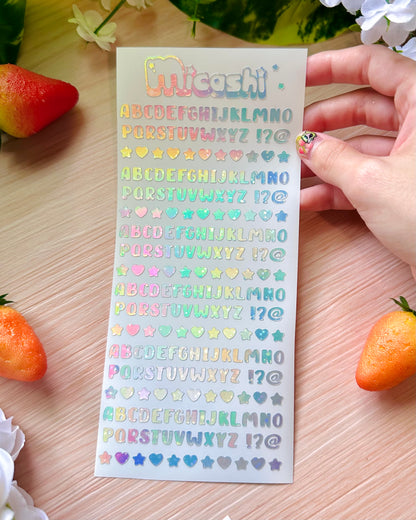 Micashi
ABCDEFGHIJKLMNO
PQRSTUVWXYZ !?@
ABCDEFGHIJKLMNO
PQRSTUVWXYZ !?@
ABCDEFGHIJKLMNO
PQRSTUVWXYZ !?@
ABCDEFGHIJKLMNO
PQRSTUVWXYZ !?@
ABCDEFGHIJKLMNO
PQRSTUVWXYZ !?@
ABCDEFGHIJKLMNO
PQRSTUVWXYZ !?@